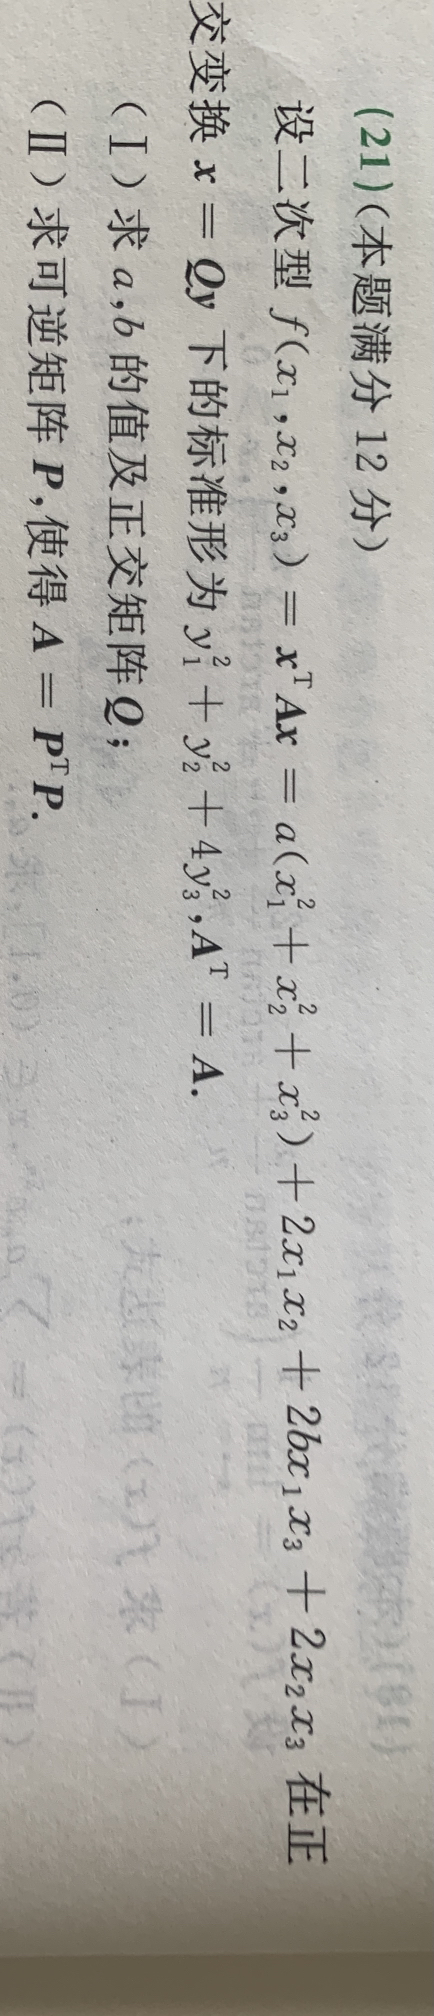 (21)(本题满分 12 分)
设二次型 f(x₁,x₂,x₃) = xᵀAx = a(x₁² + x₂² + x₃²) + 2x₁x₂ + 2bx₁x₃ + 2x₂x₃ 在正
交变换 x = Qy 下的标准形为 y₁² + y₂² + 4y₃²,Aᵀ = A.
(Ⅰ)求 a,b 的值及正交矩阵 Q;
(Ⅱ)求可逆矩阵 P,使得 A = PᵀP.